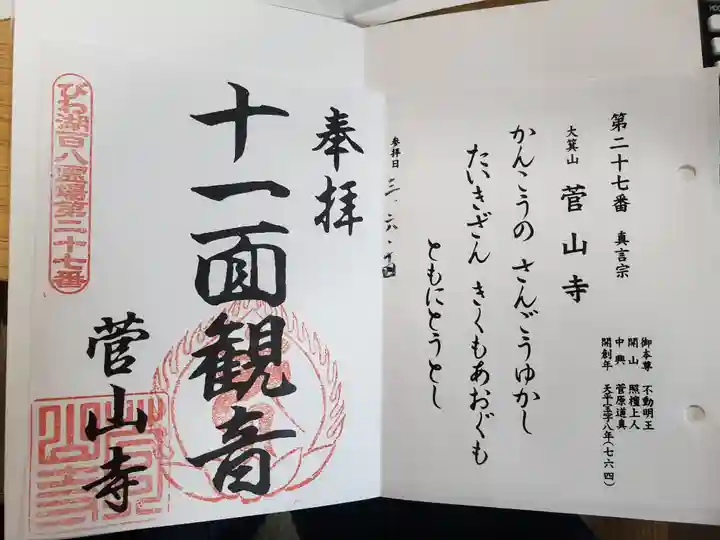 第二十七番 真言宗
大箕山 菅山寺
かんこうの さんごうゆかし
たいきざん きくもあおぐも
ともにとうとし
御本尊 不動明王
開山 照檀上人
中興 菅原道真
開創年 天平宝字八年(七六四)
参拝日
三、六、
奉拝
十一面観音
菅山寺
びわ湖百八霊場第二十七番
菅山寺